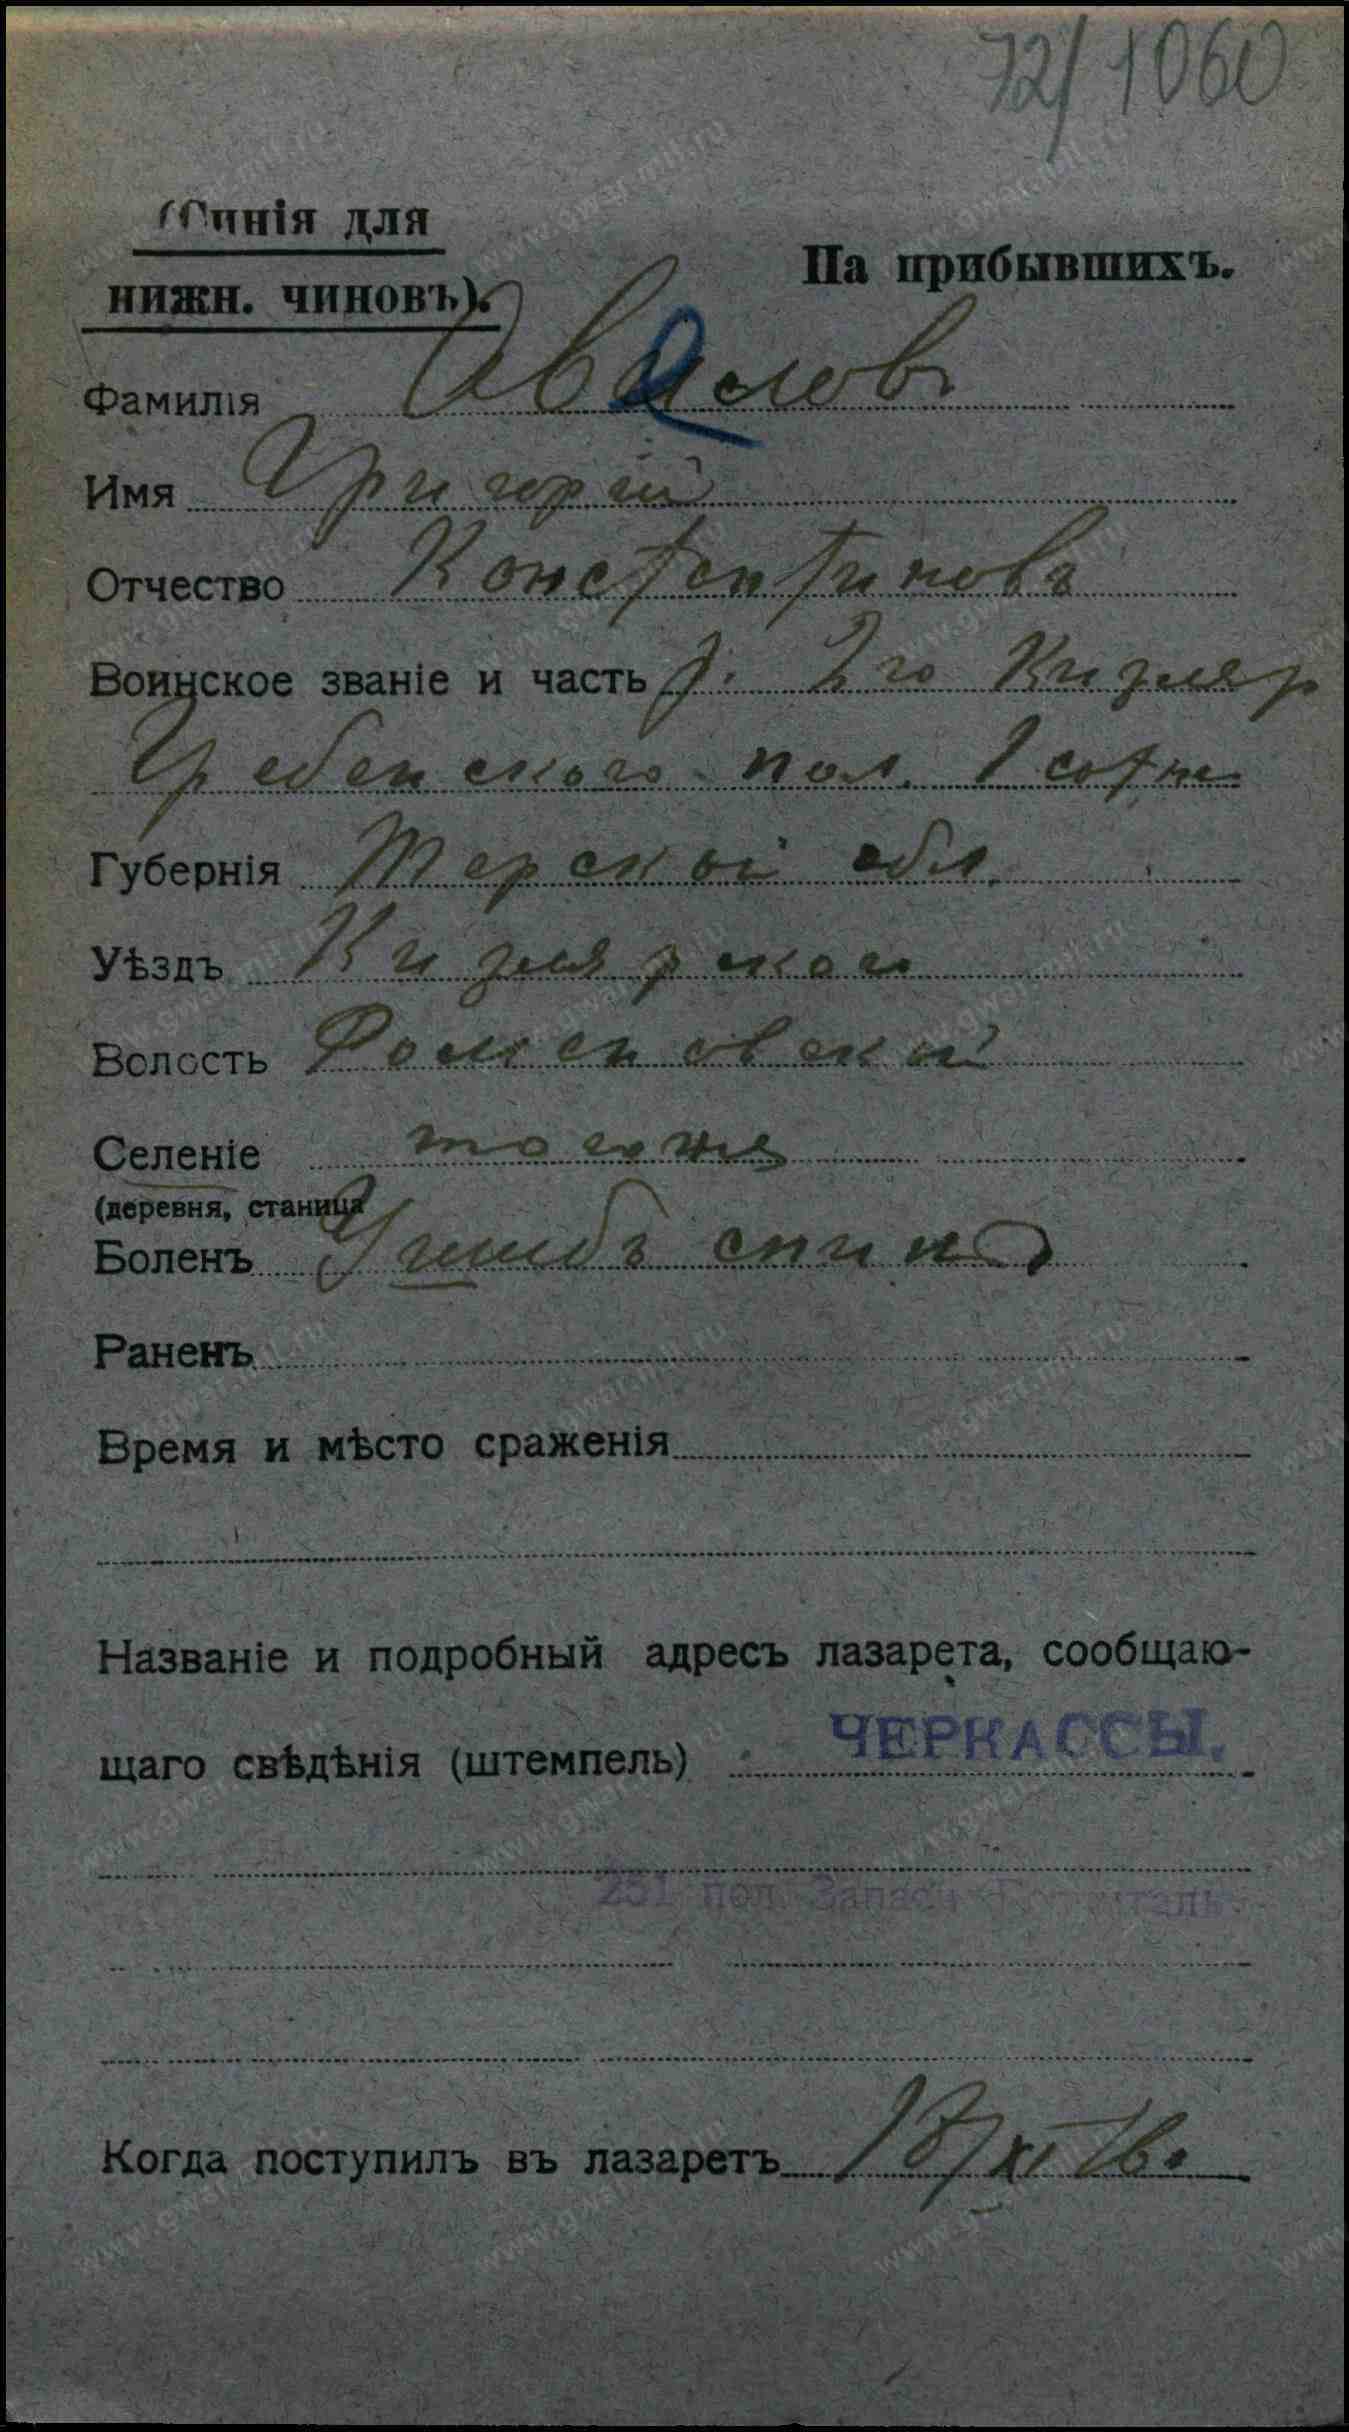 72/1060
(Синія для
нижн. чиновъ).
На прибывшихъ.
Фамилія Авалов
Имя Григорій
Отчество Констентиновъ
Воинское званіе и часть 2го Кизляр
Гребенского пол. 1 сотни
Губернія Терской обл.
Уѣздъ Кизлярского
Волость
Селеніе тогоже
(деревня, станица
Боленъ Ушибъ спины
Раненъ
Время и мѣсто сраженія
Названіе и подробный адресъ лазарета, сообщаю-
щаго свѣдѣнія (штемпель) ЧЕРКАССЫ.
251 пол. Запасн. Госпиталь.
Когда поступилъ въ лазаретъ XI 16г.